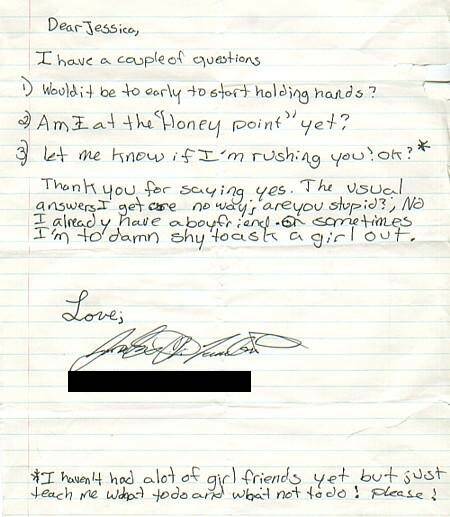 Dear Jessica,
I have a couple of questions
1) Would it be to early to start holding hands?
2) Am I at the "Honey point" yet?
3) let me know if I'm rushing you! ok?*
Thank you for saying yes. The usual
answers I get are no way; are you stupid?; No
I already have a boyfriend. Or sometimes
I'm to damn shy to ask a girl out.
Love;
*I haven't had alot of girl friends yet but just
teach me what to do and what not to do! please!